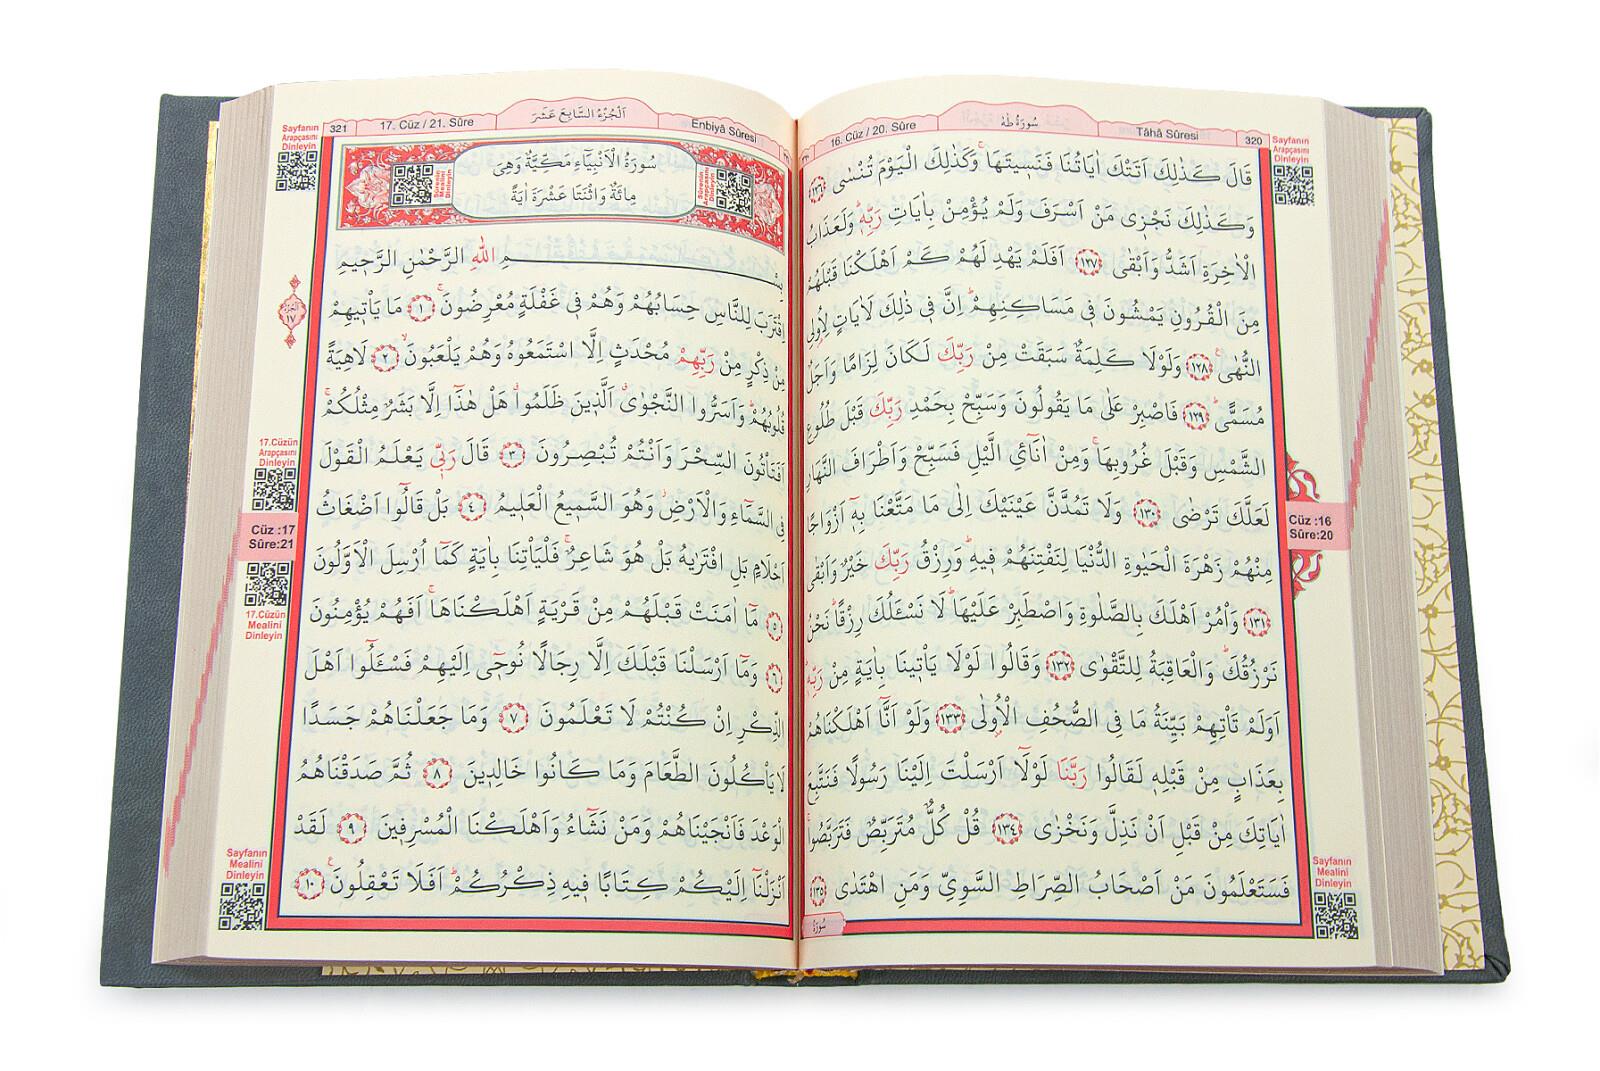 320
Tâhâ Sûresi
سُورَةُ طٰهٰ
16. Cüz / 20. Sûre
Sayfanın
Arapçasını
Dinleyin
قَالَ كَذٰلِكَ اَتَتْكَ اٰيَاتُنَا فَنَس۪يتَهَاۚ وَكَذٰلِكَ الْيَوْمَ تُنْسٰى ﴿١٢٦﴾
وَكَذٰلِكَ نَجْز۪ي مَنْ اَسْرَفَ وَلَمْ يُؤْمِنْ بِاٰيَاتِ رَبِّه۪ۜ وَلَعَذَابُ
الْاٰخِرَةِ اَشَدُّ وَاَبْقٰى ﴿١٢٧﴾ اَفَلَمْ يَهْدِ لَهُمْ كَمْ اَهْلَكْنَا قَبْلَهُمْ
مِنَ الْقُرُونِ يَمْشُونَ ف۪ي مَسَاكِنِهِمْۜ اِنَّ ف۪ي ذٰلِكَ لَاٰيَاتٍ لِاُو۬لِي
النُّهٰى۟ ﴿١٢٨﴾ وَلَوْلَا كَلِمَةٌ سَبَقَتْ مِنْ رَبِّكَ لَكَانَ لِزَامًا وَاَجَلٌ
مُسَمًّىۜ ﴿١٢٩﴾ فَاصْبِرْ عَلٰى مَا يَقُولُونَ وَسَبِّحْ بِحَمْدِ رَبِّكَ قَبْلَ طُلُوعِ
الشَّمْسِ وَقَبْلَ غُرُوبِهَاۚ وَمِنْ اٰنَٓائِ الَّيْلِ فَسَبِّحْ وَاَطْرَافَ النَّهَارِ
لَعَلَّكَ تَرْضٰى ﴿١٣٠﴾ وَلَا تَمُدَّنَّ عَيْنَيْكَ اِلٰى مَا مَتَّعْنَا بِه۪ٓ اَزْوَاجًا
مِنْهُمْ زَهْرَةَ الْحَيٰوةِ الدُّنْيَا لِنَفْتِنَهُمْ ف۪يهِۜ وَرِزْقُ رَبِّكَ خَيْرٌ وَاَبْقٰى
﴿١٣١﴾ وَأْمُرْ اَهْلَكَ بِالصَّلٰوةِ وَاصْطَبِرْ عَلَيْهَاۜ لَا نَسْـَٔلُكَ رِزْقًاۜ نَحْنُ
نَرْزُقُكَۜ وَالْعَاقِبَةُ لِلتَّقْوٰى ﴿١٣٢﴾ وَقَالُوا لَوْلَا يَأْت۪ينَا بِاٰيَةٍ مِنْ رَبِّه۪ۜ
اَوَلَمْ تَأْتِهِمْ بَيِّنَةُ مَا فِي الصُّحُفِ الْاُو۫لٰى ﴿١٣٣﴾ وَلَوْ اَنَّٓا اَهْلَكْنَاهُمْ
بِعَذَابٍ مِنْ قَبْلِه۪ لَقَالُوا رَبَّنَا لَوْلَٓا اَرْسَلْتَ اِلَيْنَا رَسُولًا فَنَتَّبِعَ
اٰيَاتِكَ مِنْ قَبْلِ اَنْ نَذِلَّ وَنَخْزٰى ﴿١٣٤﴾ قُلْ كُلٌّ مُتَرَبِّصٌ فَتَرَبَّصُواۚ
فَسَتَعْلَمُونَ مَنْ اَصْحَابُ الصِّرَاطِ السَّوِيِّ وَمَنِ اهْتَدٰى ﴿١٣٥﴾
سُورَةُ
Cüz :16
Sûre:20
Sayfanın
Mealini
Dinleyin
Enbiyâ Sûresi
اَلْجُزْءُ السَّابِعَ عَشَرَ
17. Cüz / 21. Sûre
321
Sayfanın
Arapçasını
Dinleyin
سُورَةُ الْاَنْبِيَٓاءِ مَكِّيَّةٌ وَهِيَ
مِائَةٌ وَاثْنَتَا عَشْرَةَ اٰيَةً
Sûrenin
Arapçasını
Dinleyin
Sûrenin
Mealini
Dinleyin
بِسْمِ اللّٰهِ الرَّحْمٰنِ الرَّح۪يمِ
اِقْتَرَبَ لِلنَّاسِ حِسَابُهُمْ وَهُمْ ف۪ي غَفْلَةٍ مُعْرِضُونَۚ ﴿١﴾ مَا يَأْت۪يهِمْ
مِنْ ذِكْرٍ مِنْ رَبِّهِمْ مُحْدَثٍ اِلَّا اسْتَمَعُوهُ وَهُمْ يَلْعَبُونَۙ ﴿٢﴾ لَاهِيَةً
قُلُوبُهُمْۜ وَاَسَرُّوا النَّجْوٰىۗ اَلَّذ۪ينَ ظَلَمُواۗ هَلْ هٰذَٓا اِلَّا بَشَرٌ مِثْلُكُمْۚ
اَفَتَأْتُونَ السِّحْرَ وَاَنْتُمْ تُبْصِرُونَ ﴿٣﴾ قَالَ رَبّ۪ي يَعْلَمُ الْقَوْلَ
فِي السَّمَٓاءِ وَالْاَرْضِۘ وَهُوَ السَّم۪يعُ الْعَل۪يمُ ﴿٤﴾ بَلْ قَالُٓوا اَضْغَاثُ
اَحْلَامٍ بَلِ افْتَرٰيهُ بَلْ هُوَ شَاعِرٌۚ فَلْيَأْتِنَا بِاٰيَةٍ كَمَٓا اُرْسِلَ الْاَوَّلُونَ
﴿٥﴾ مَٓا اٰمَنَتْ قَبْلَهُمْ مِنْ قَرْيَةٍ اَهْلَكْنَاهَاۚ اَفَهُمْ يُؤْمِنُونَ
﴿٦﴾ وَمَٓا اَرْسَلْنَا قَبْلَكَ اِلَّا رِجَالًا نُوح۪ٓي اِلَيْهِمْ فَسْـَٔلُٓوا اَهْلَ
الذِّكْرِ اِنْ كُنْتُمْ لَا تَعْلَمُونَ ﴿٧﴾ وَمَا جَعَلْنَاهُمْ جَسَدًا
لَا يَأْكُلُونَ الطَّعَامَ وَمَا كَانُوا خَالِد۪ينَ ﴿٨﴾ ثُمَّ صَدَقْنَاهُمُ
الْوَعْدَ فَاَنْجَيْنَاهُمْ وَمَنْ نَشَٓاءُ وَاَهْلَكْنَا الْمُسْرِف۪ينَ ﴿٩﴾ لَقَدْ
اَنْزَلْنَٓا اِلَيْكُمْ كِتَابًا ف۪يهِ ذِكْرُكُمْۜ اَفَلَا تَعْقِلُونَ۟ ﴿١٠﴾
اَلْجُزْءُ
١٧
17.Cüzün
Arapçasını
Dinleyin
Cüz :17
Sûre:21
17.Cüzün
Mealini
Dinleyin
Sayfanın
Mealini
Dinleyin